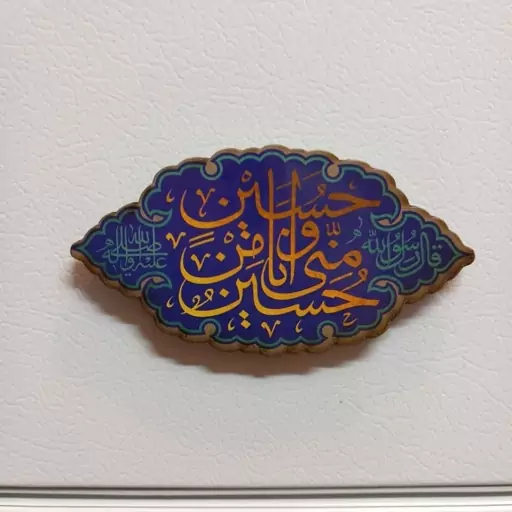 قال رسول الله
صلی الله علیه و آله
حُسَین
مِنّی وَ اَنَا مِن
حُسَین